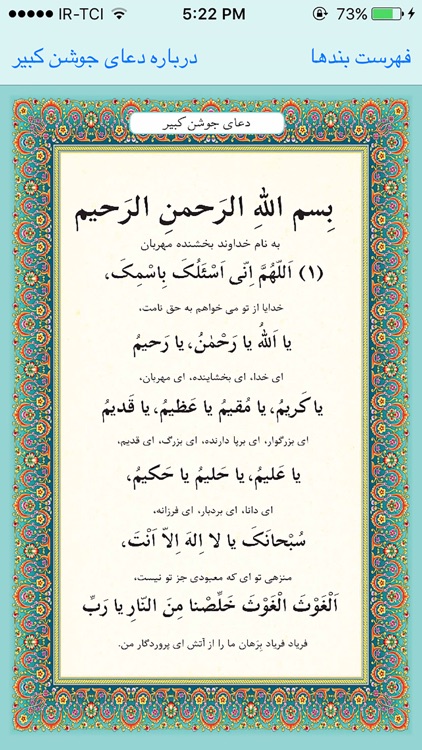 ●●●●● IR-TCI 5:22 PM 73%
فهرست بندها درباره دعای جوشن کبیر
دعای جوشن کبیر
بِسم اللهِ الرَحمنِ الرَحیم
به نام خداوند بخشنده مهربان
(۱) اَللّهُمَّ اِنّی اَسْئَلُکَ بِاسْمِکَ،
خدایا از تو می خواهم به حق نامت،
یا اَللهُ یا رَحْمٰنُ، یا رَحیمُ
ای خدا، ای بخشاینده، ای مهربان،
یا کَریمُ، یا مُقیمُ یا عَظیمُ، یا قَدیمُ
ای بزرگوار، ای برپا دارنده، ای بزرگ، ای قدیم،
یا عَلیمُ، یا حَلیمُ یا حَکیمُ،
ای دانا، ای بردبار، ای فرزانه،
سُبْحانَکَ یا لا اِلهَ اِلاّ اَنْتَ،
منزهی تو ای که معبودی جز تو نیست،
اَلْغَوْثَ الْغَوْثَ خَلِّصْنا مِنَ النّارِ یا رَبِّ
فریاد فریاد بِرَهان ما را از آتش ای پروردگار من.